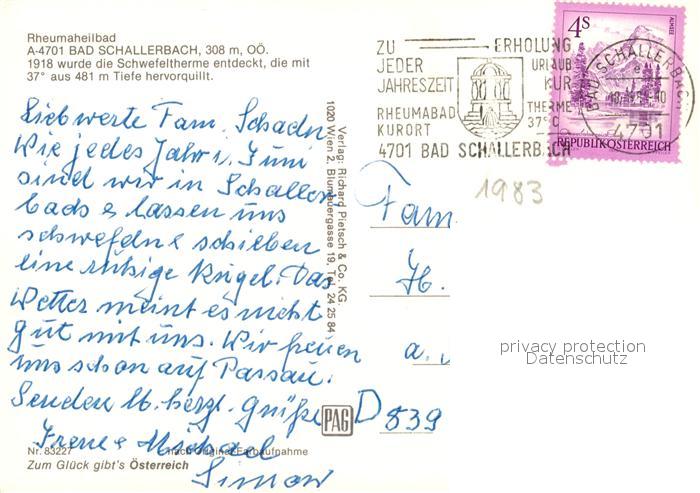 Rheumaheilbad
A-4701 BAD SCHALLERBACH, 308 m, OÖ.
1918 wurde die Schwefeltherme entdeckt, die mit
37° aus 481 m Tiefe hervorquillt.
ZU ERHOLUNG
JEDER URLAUB
JAHRESZEIT KUR
RHEUMABAD THERME
KURORT 37°C
4701 BAD SCHALLERBACH
4S
ALMSEE
REPUBLIK ÖSTERREICH
BAD SCHALLERBACH
4701
1983
Liebwerte Fam. Schadn
Wie jedes Jahr i. Juni
sind wir in Schaller
bach & lassen uns
schwefeln & schieben
eine ruhige Kugel. Das
Wetter meint es nicht
gut mit uns. Wir freuen
uns schon auf Passau.
Senden lb. herzl. Grüße
Irene & Michael
Simon
Verlag: Richard Pietsch & Co. KG.
1020 Wien 2, Blumauergasse 19, Tel. 24 25 84
Fam
H.
a.
D 839
privacy protection
Datenschutz
PAG
Nr. 83227 nach Original-Farbaufnahme
Zum Glück gibt's Österreich